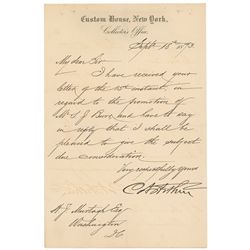 Custom House, New York,
Collector's Office,
Sept. 18th 1873.
My dear Sir
I have received your
letter of the 15th instant, in
regard to the promotion of
Mr S. J. Burr, and have to say
in reply that I shall be
pleased to give the subject
due consideration.
Very respectfully yours
C A Arthur
W. J. Murtagh Esq
Washington
DC